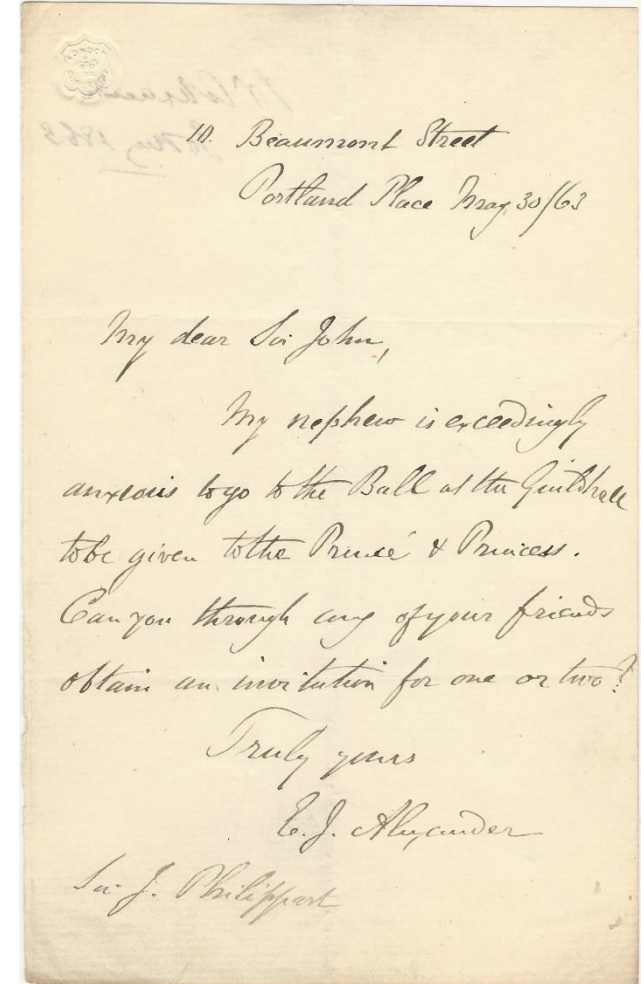 LONDON
10. Beaumont Street
Portland Place May 30/63
My dear Sir John,
My nephew is exceedingly
anxious to go to the Ball at the Guildhall
to be given to the Prince & Princess.
Can you through any of your friends
obtain an invitation for one or two?
Truly yours
E. J. Alexander
Sir J. Philippart